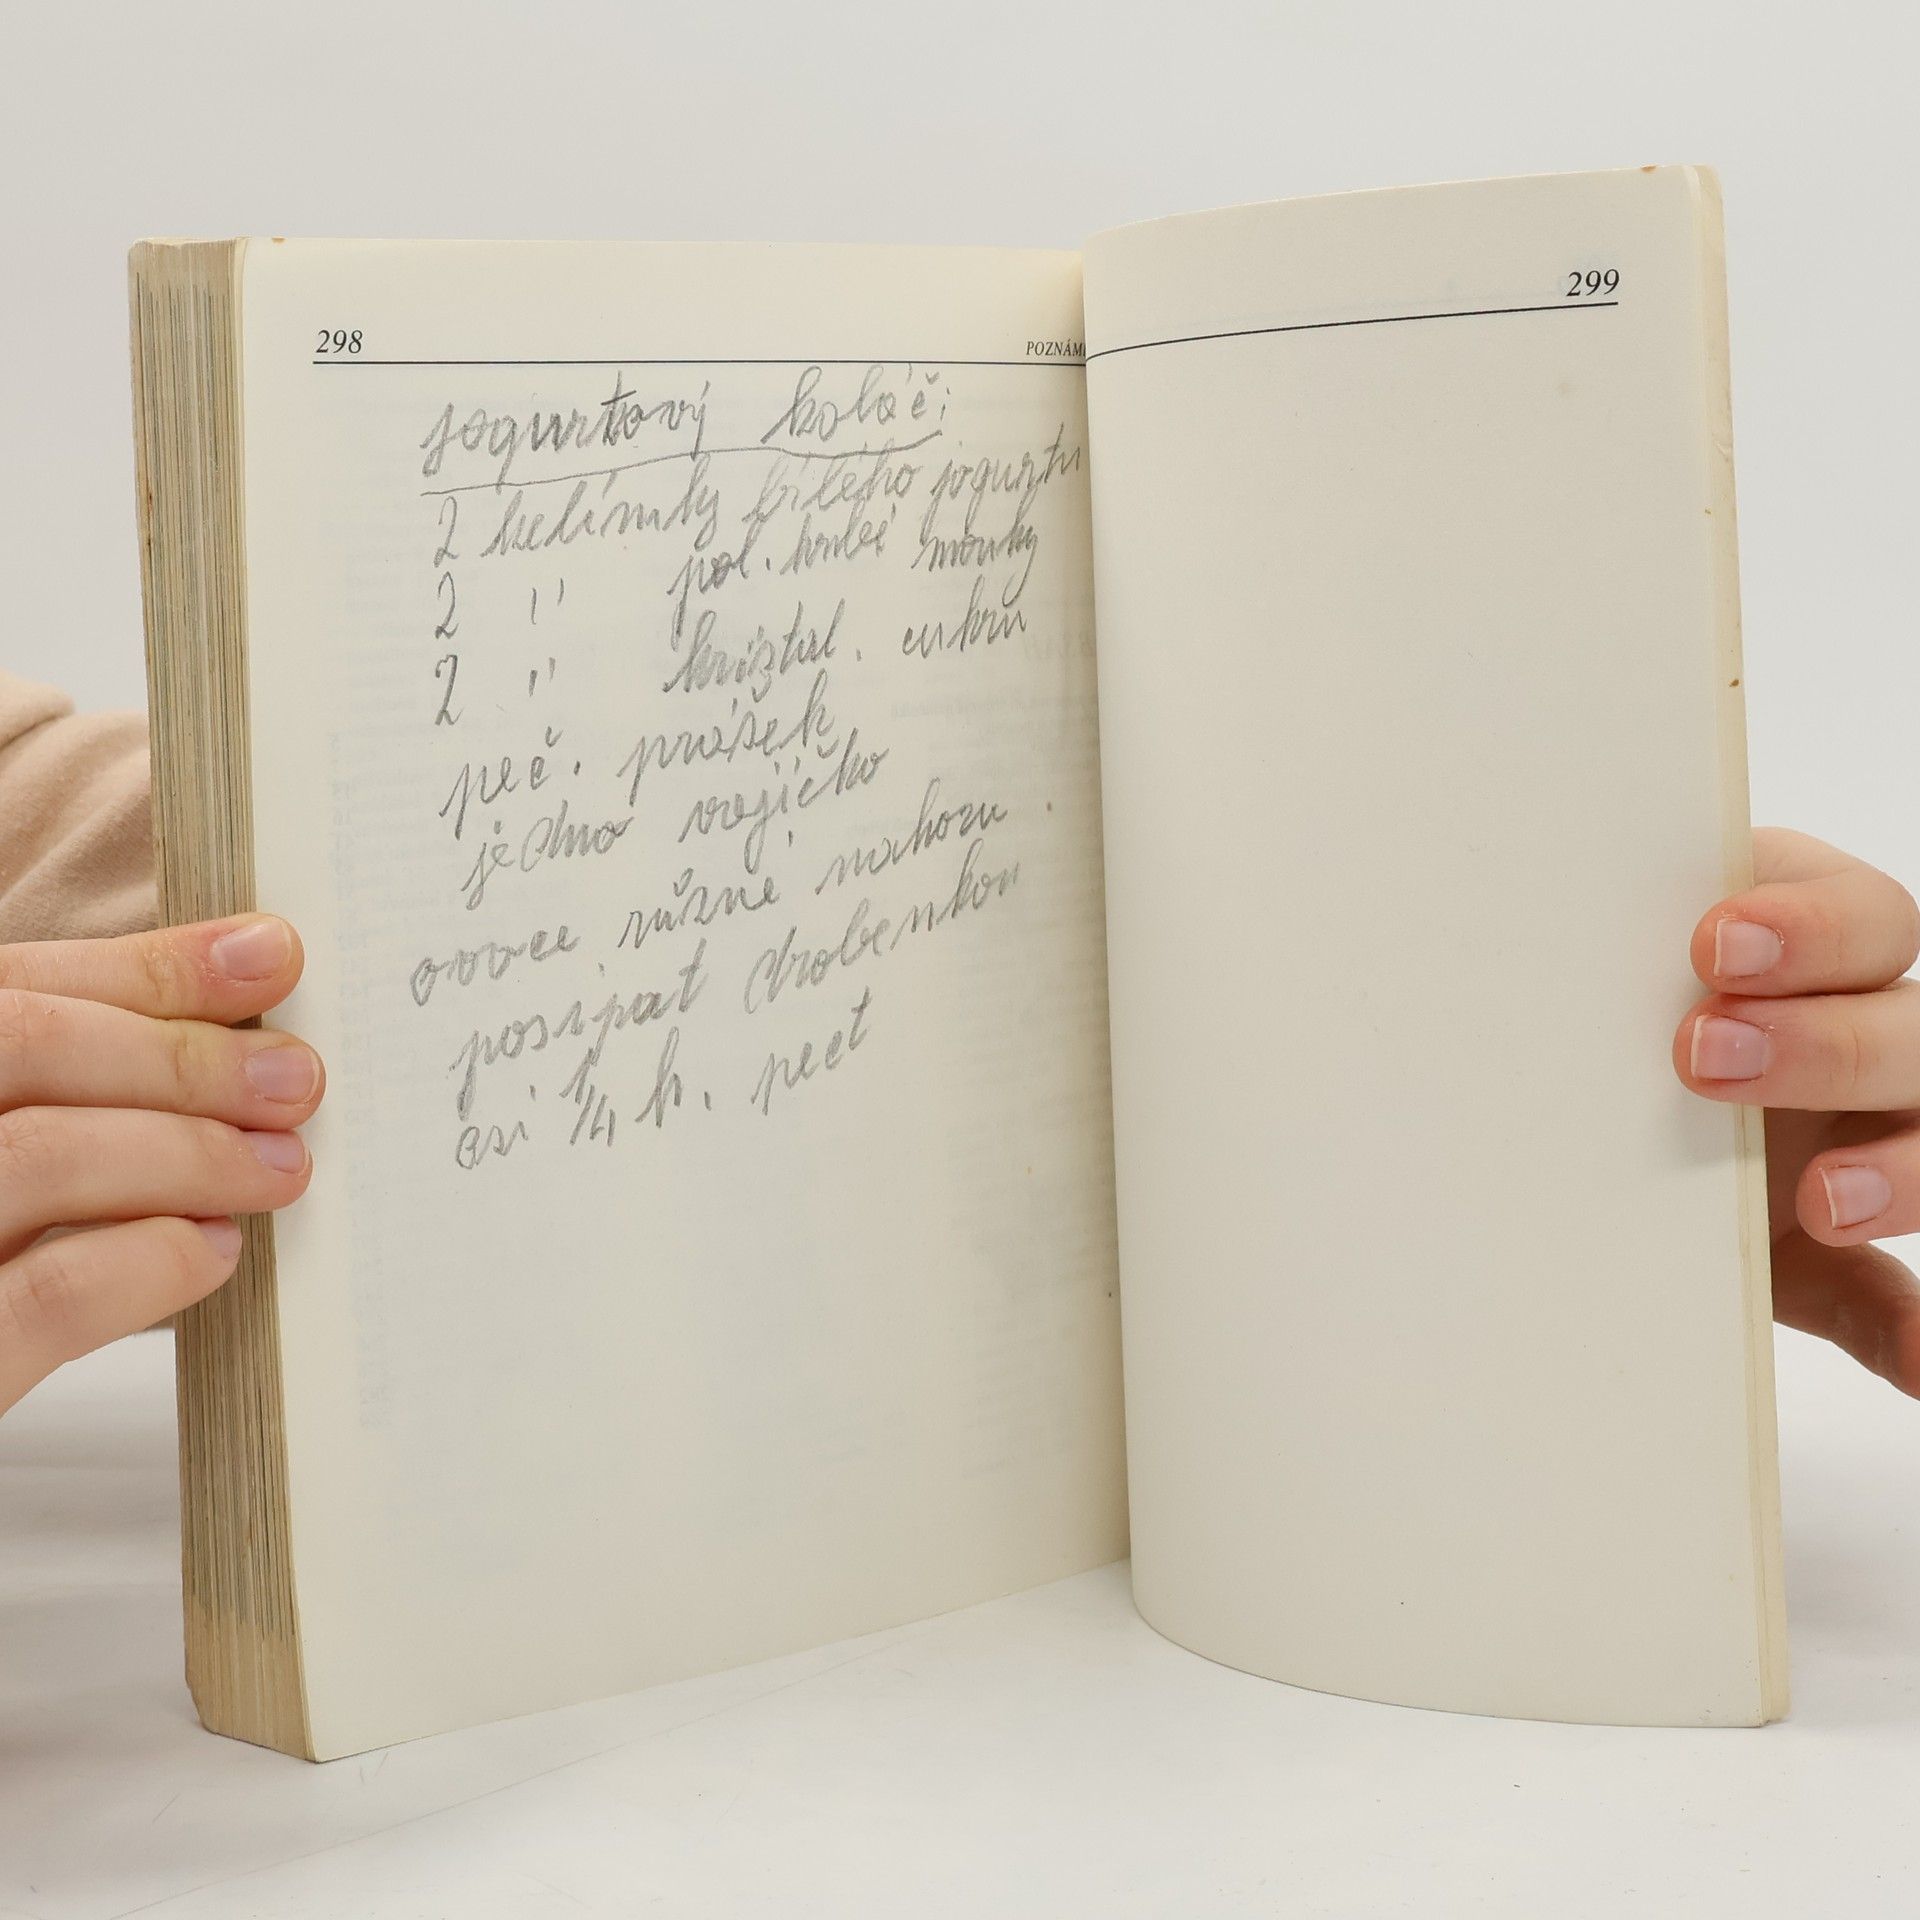 298
POZNÁM
299
jogurtový koláč:
2 kelímky bílého jogurtu
2 " pol. hrubé mouky
2 " kristal. cukru
peč. prášek
jedno vajíčko
ovoce různé nahoru.
posipat drobenkou
asi 1/4 h. péct